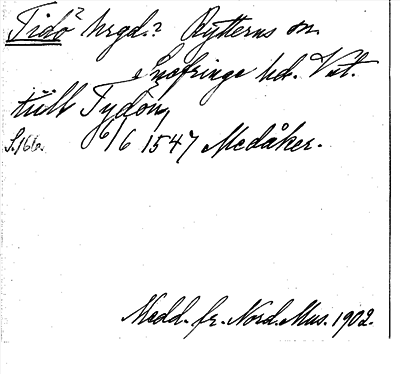 Tidö? hrgd.? Rytterns sn.
Snefringe hd. Vstl.
till Tydön
S.166. 6/6 1547 Medåker.
Medd. fr. Nord. Mus. 1902.